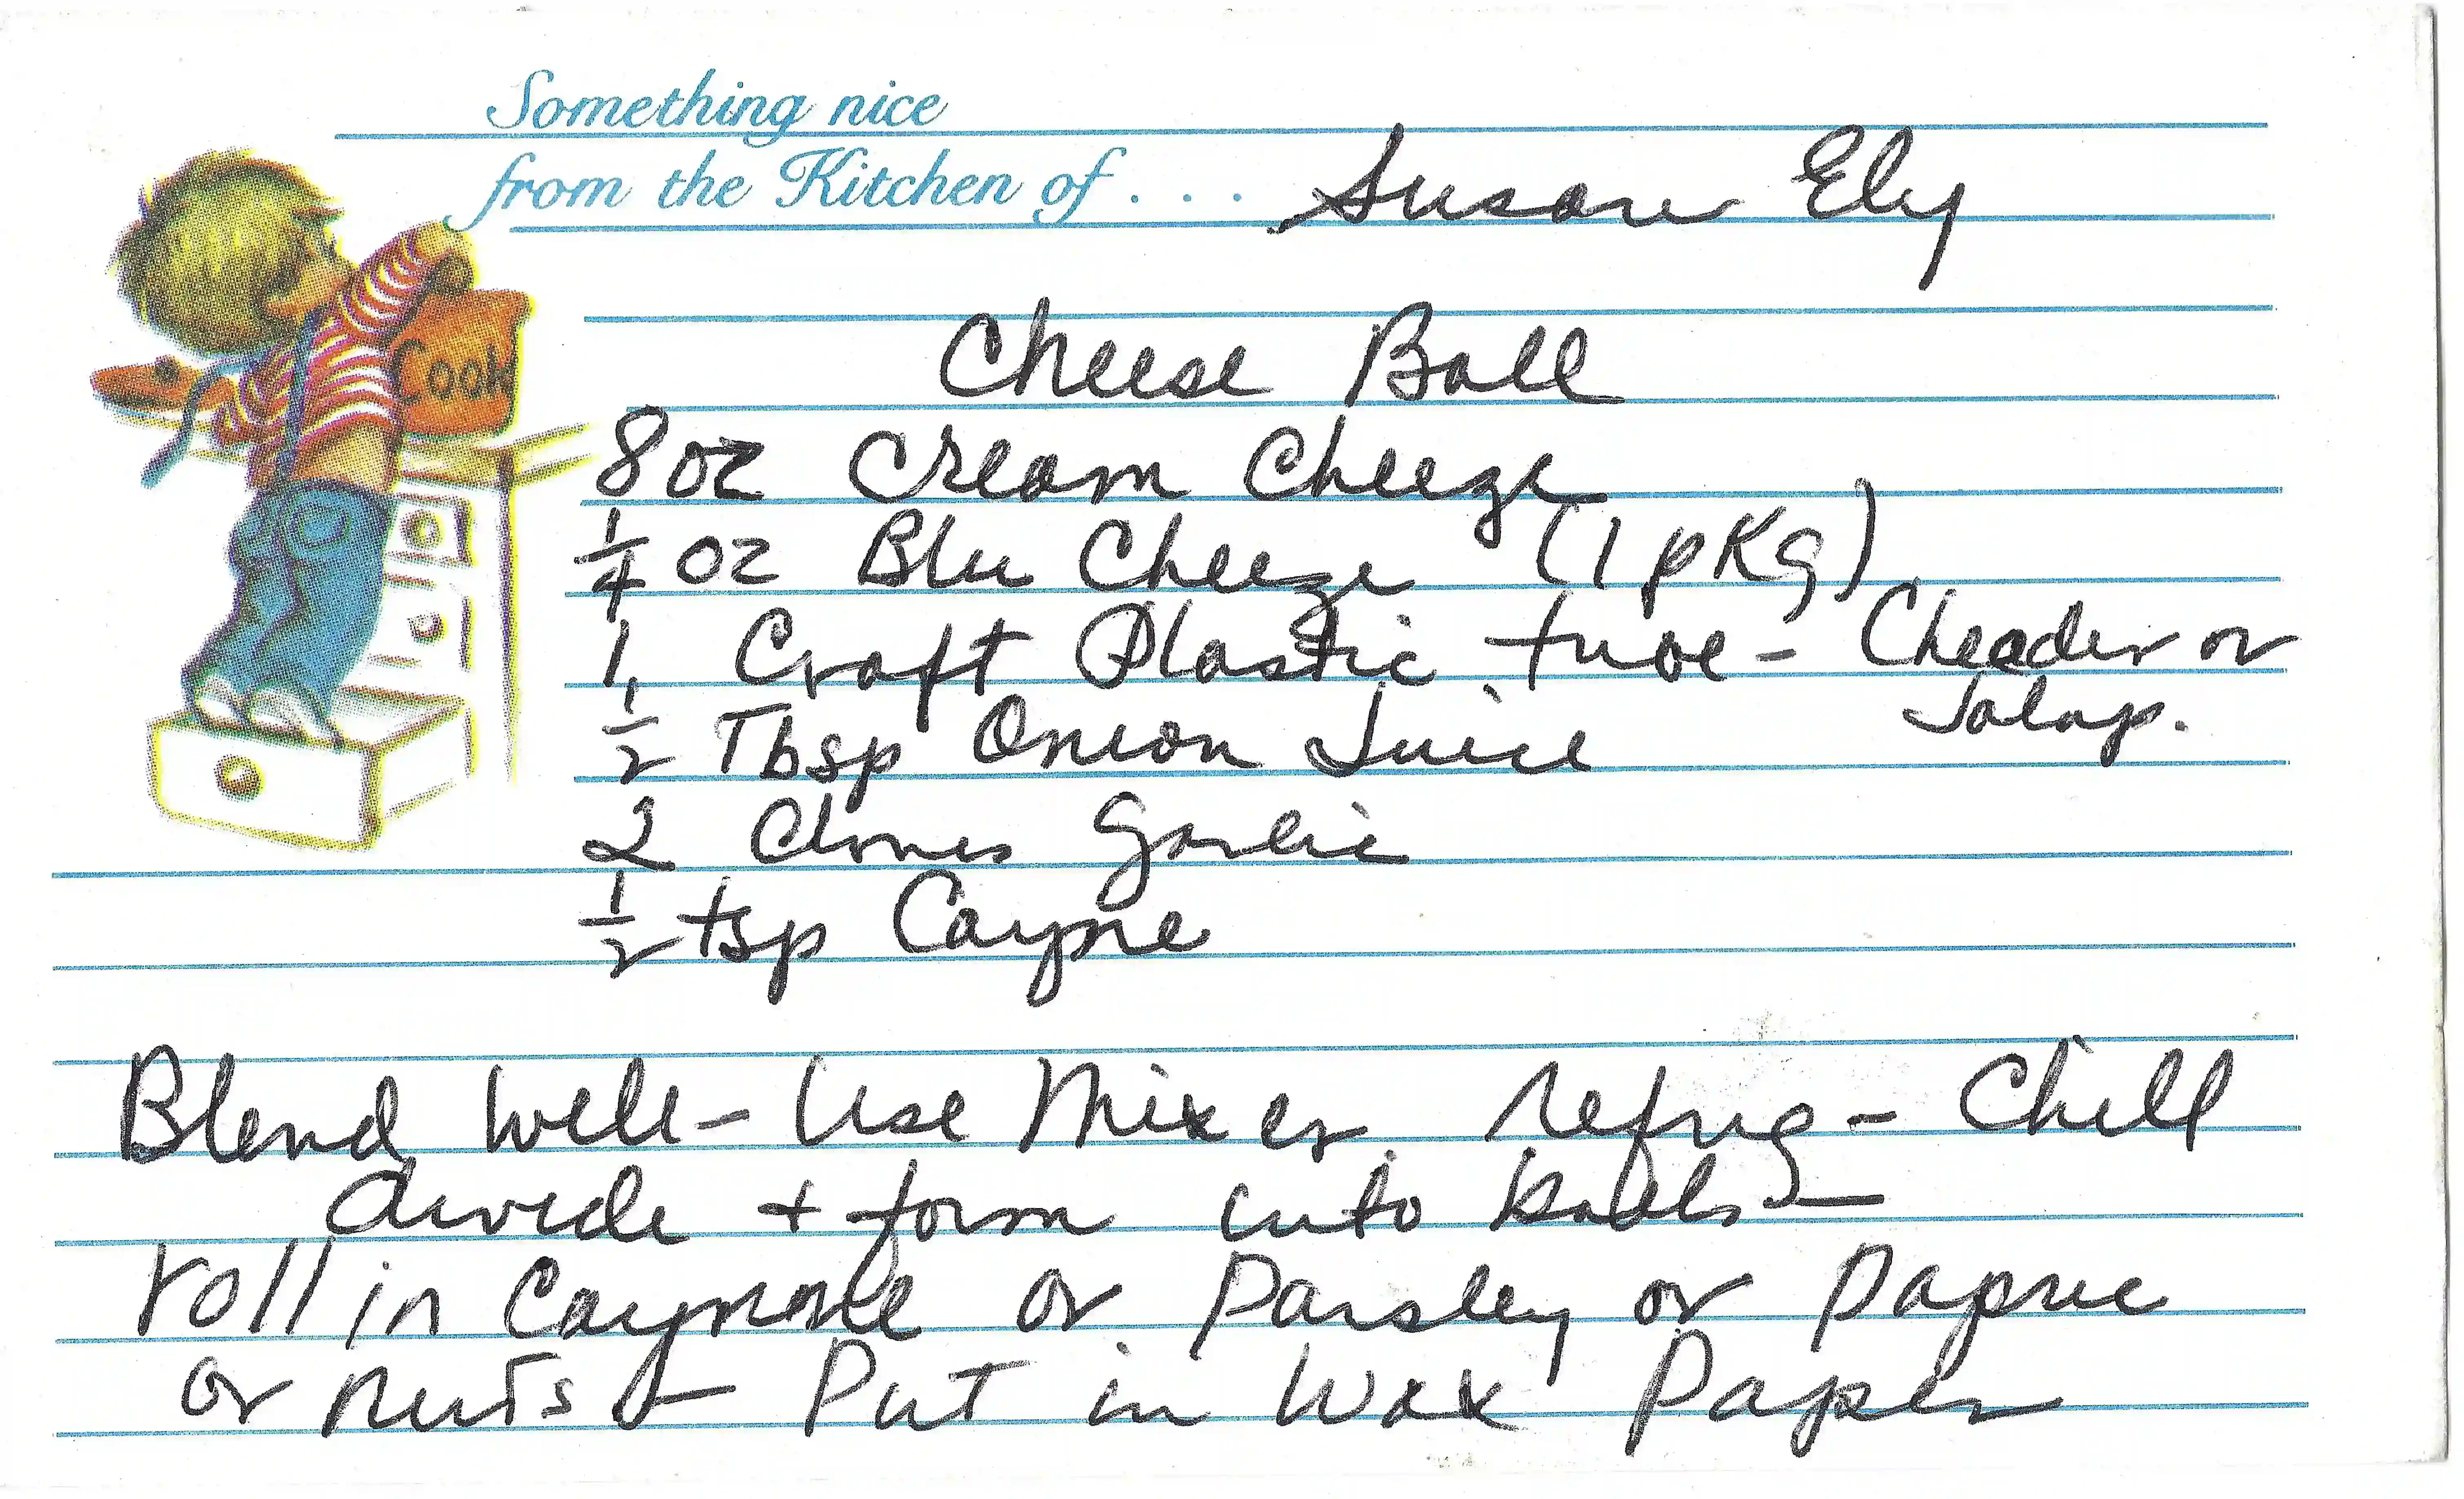 Something nice
from the Kitchen of . . . Susan Ely
Cook
Cheese Ball
8 oz Cream Cheeze
1/4 oz Blu Cheeze (1 pKg)
1 Craft Plastic tube - Cheader or
Jalap.
1/2 Tbsp Onion Juice
2 Cloves Garlic
1/2 tsp Caynne
Blend Well - Use Mixer refrig - Chill
divide + form into balls -
roll in Caynnne or Parsley or Papric
or nuts - Put in Wax Paper